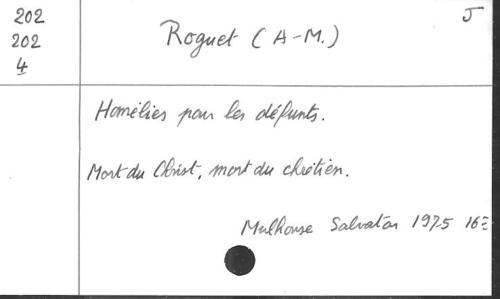 202
202
4
Roguet (A-M.)
J
Homélies pour les défunts.
Mort du Christ, mort du chrétien.
Mulhouse Salvator 1975 16=